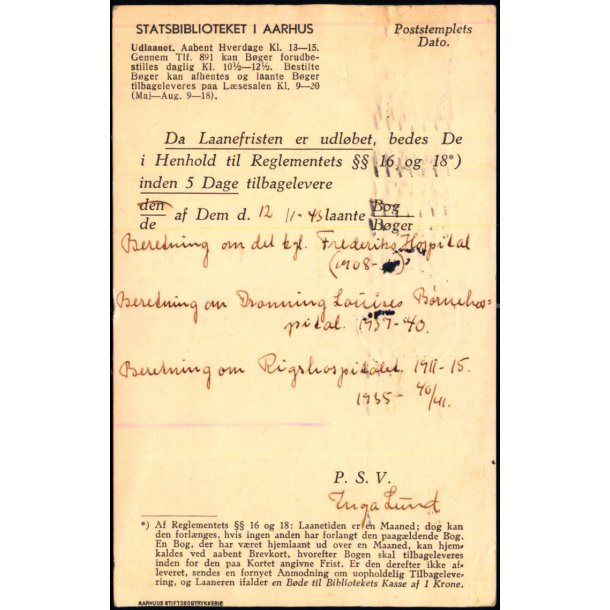 STATSBIBLIOTEKET I AARHUS
Poststemplets
Dato.
Udlaanet. Aabent Hverdage Kl. 13—15.
Gennem Tlf. 891 kan Bøger forudbe-
stilles daglig Kl. 10½—12½. Bestilte
Bøger kan afhentes og laante Bøger
tilbageleveres paa Læsesalen Kl. 9—20
(Maj—Aug. 9—18).
Da Laanefristen er udløbet, bedes De
i Henhold til Reglementets §§ 16 og 18*)
inden 5 Dage tilbagelevere
den
de af Dem d. 12/1-43 laante Bog
Bøger
Beretning om det kgl. Frederiks Hospital
(1908-
Beretning om Dronning Louises Børneho-
spital. 1937-40.
Beretning om Rigshospitalet. 1911-15.
1935-40/41.
P. S. V.
Inga Lund
*) Af Reglementets §§ 16 og 18: Laanetiden er en Maaned; dog kan
den forlænges, hvis ingen anden har forlangt den paagældende Bog.
En Bog, der har været hjemlaant ud over en Maaned, kan hjem-
kaldes ved aabent Brevkort, hvorefter Bogen skal tilbageleveres
inden for den paa Kortet angivne Frist. Er den derefter ikke af-
leveret, sendes en fornyet Anmodning om uopholdelig Tilbageleve-
ring, og Laaneren ifalder en Bøde til Bibliotekets Kasse af 1 Krone.
AARHUUS STIFTSBOGTRYKKERIE